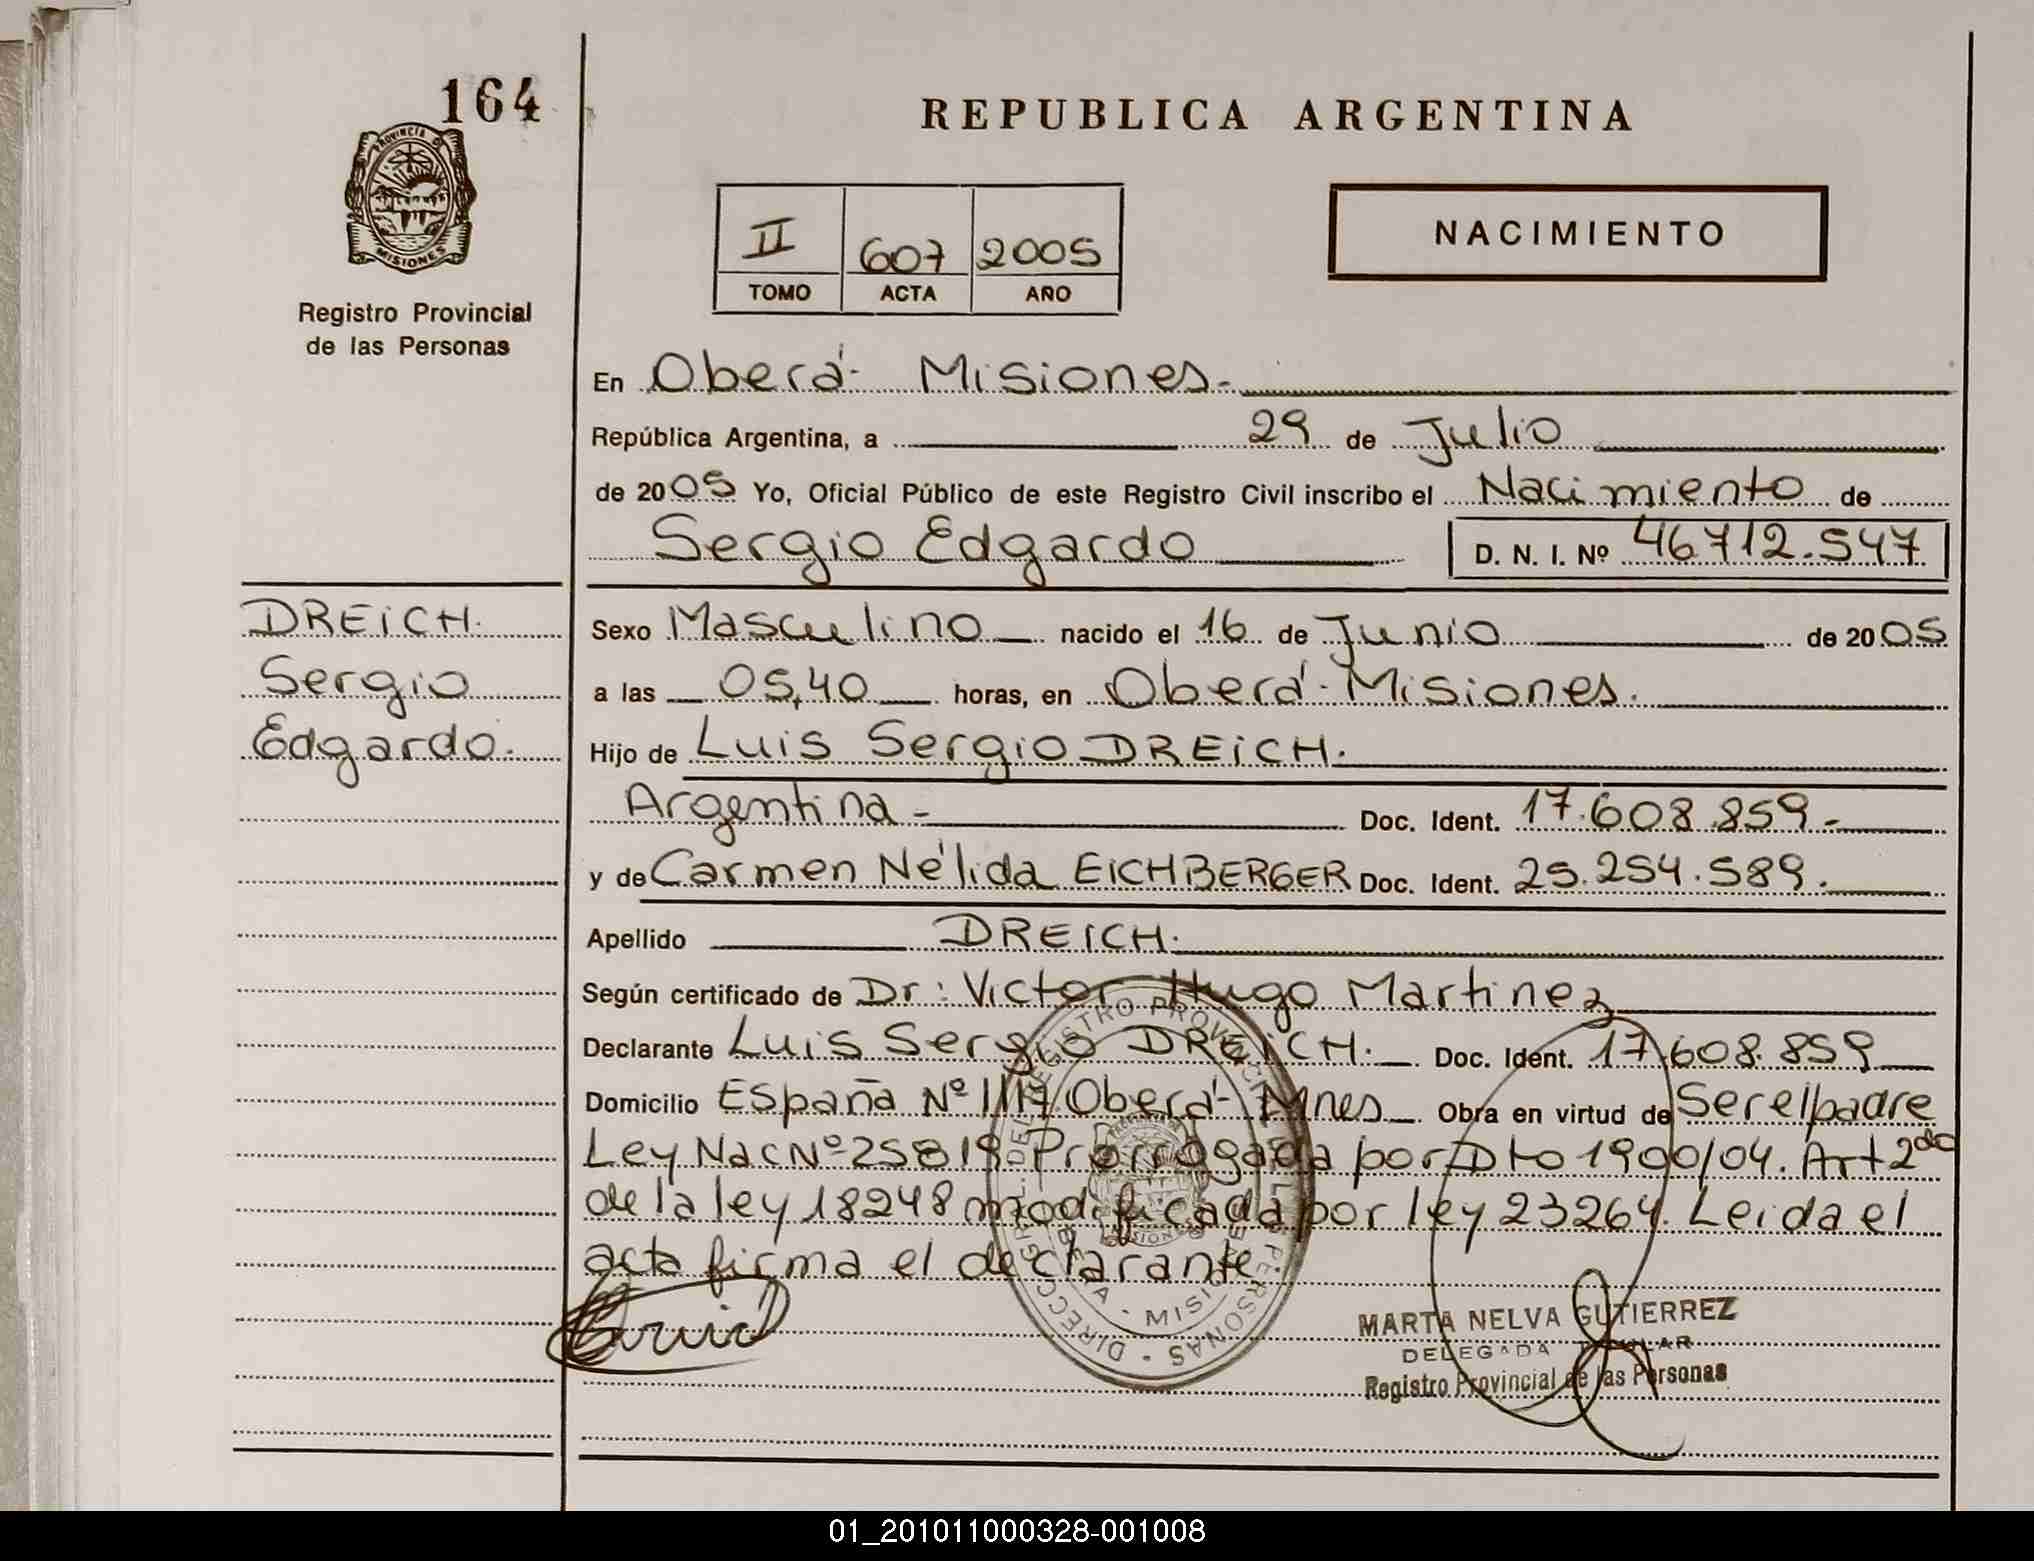 164
PROVINCIA D
MISIONES
Registro Provincial
de las Personas
REPUBLICA ARGENTINA
II 607 2005
TOMO ACTA AÑO
NACIMIENTO
En Oberá- Misiones.
República Argentina, a 29 de Julio
de 2005 Yo, Oficial Público de este Registro Civil inscribo el Nacimiento de
Sergio Edgardo D. N. I. Nº 46712.547
DREICH.
Sergio
Edgardo.
Sexo Masculino nacido el 16 de Junio de 2005
a las 05,40 horas, en Oberá-Misiones.
Hijo de Luis Sergio DREICH.
Argentina- Doc. Ident. 17.608.859.-
y de Carmen Nélida EICHBERGER Doc. Ident. 25.254.589.
Apellido DREICH.
Según certificado de Dr: Victor Hugo Martinez
Declarante Luis Sergio DREICH. Doc. Ident. 17.608.859
Domicilio España Nº 1117 Oberá- Mnes Obra en virtud de Ser el padre
Ley Nac Nº 25819 Prorrogada por Dto 1900/04. Art 2do
de la ley 18248 modificada por ley 23264. Leida el
acta firma el declarante.
MARTA NELVA GUTIERREZ
DELEGADA TITULAR
Registro Provincial de las Personas
01_201011000328-001008